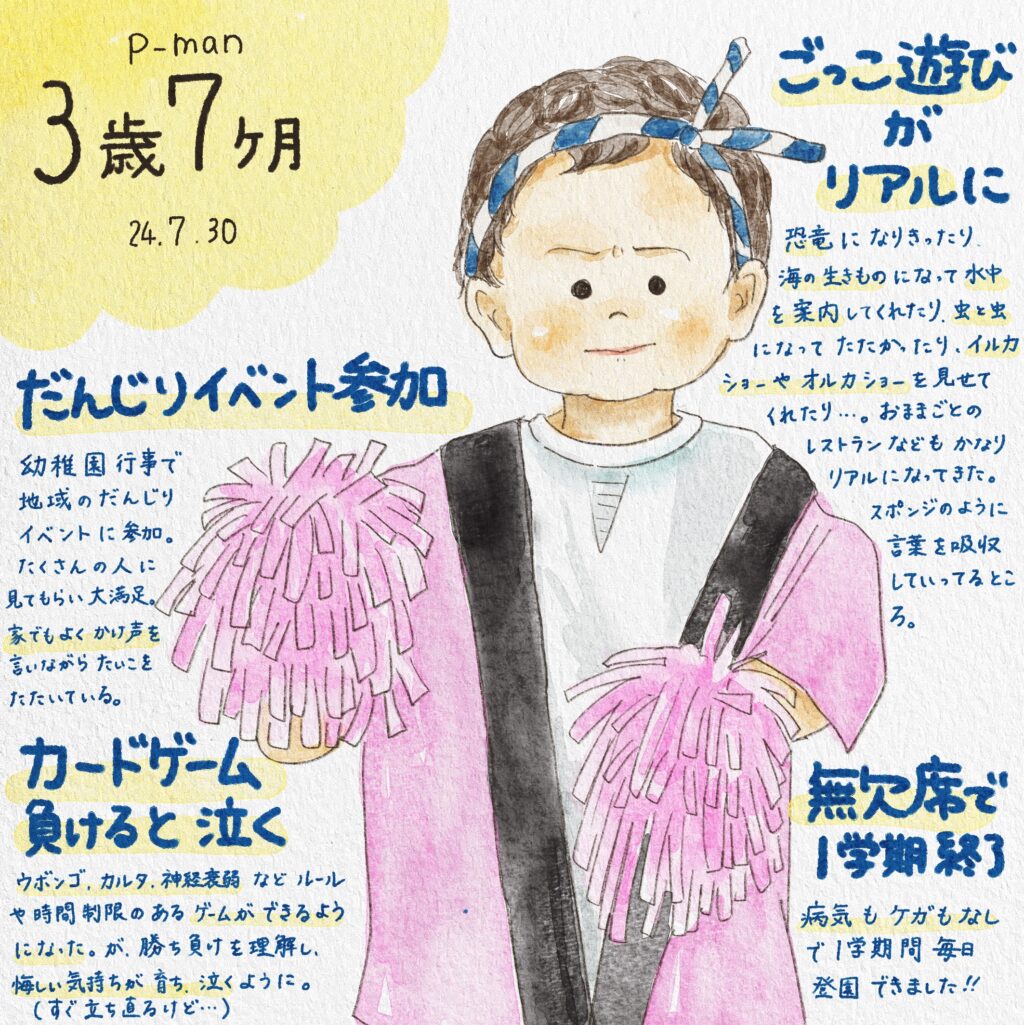 P-man
3歳7ヶ月
24.7.30
ごっこ遊び
が
リアルに
恐竜になりきったり、
海の生きものになって水中
を案内してくれたり、虫と虫
になってたたかったり、イルカ
ショーやオルカショーを見せて
くれたり…。おままごとの
レストランなどもかなり
リアルになってきた。
スポンジのように
言葉を吸収
していってるとこ
ろ。
だんじりイベント参加
幼稚園行事で
地域のだんじり
イベントに参加。
たくさんの人に
見てもらい大満足。
家でもよくかけ声を
言いながらたいこを
たたいている。
カードゲーム
負けると泣く
ウボンゴ、カルタ、神経衰弱などルール
や時間制限のあるゲームができるよう
になった。が、勝ち負けを理解し、
悔しい気持ちが育ち、泣くように。
(すぐ立ち直るけど…)
無欠席で
1学期終了
病気もケガもなし
で1学期間毎日
登園できました!!